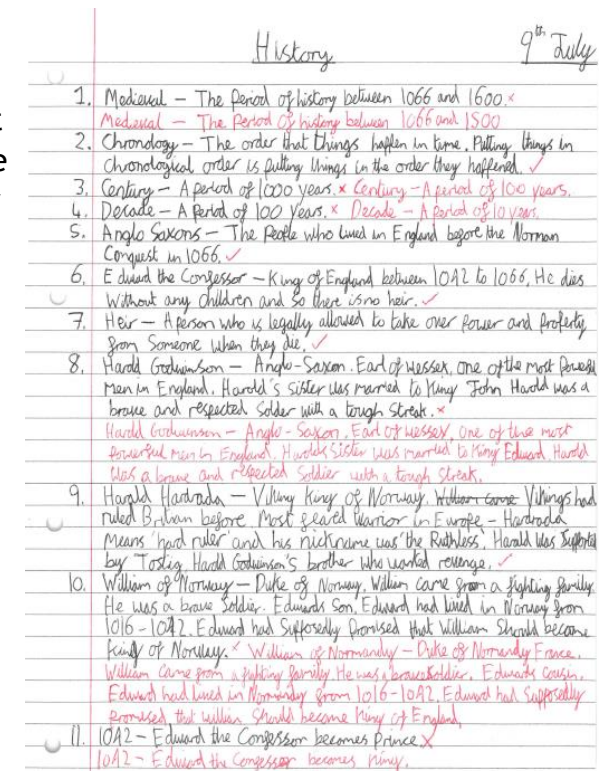 History
9th July
1. Medieval – The Period of history between 1066 and 1600. ×
Medieval – The Period of history between 1066 and 1500
2. Chronology – The order that things happen in time. Putting things in
chronological order is putting things in the order they happened. ✓
3. Century – A period of 1000 years. × Century – A period of 100 years.
4. Decade – A Period of 100 Years. × Decade – A period of 10 years.
5. Anglo Saxons – The People who lived in England before the Norman
Conquest in 1066. ✓
6. Edward the Confessor – King of England between 1042 to 1066, He dies
without any children and so there is no heir. ✓
7. Heir – A person who is legally allowed to take over power and property
from Someone when they die. ✓
8. Harold Godwinson – Anglo-Saxon. Earl of wessex, one of the most Powerful
Men in England. Harold's sister was married to King John Harold was a
brave and respected Solder with a tough Streak. ×
Harold Godwinson – Anglo-Saxon. Earl of Wessex, one of the most
powerful men in England. Harolds Sister was married to King Edward. Harold
was a brave and respected Soldier with a tough Streak.
9. Harald Hardrada – Viking King of Norway. William came Vikings had
ruled Britian before. Most feared warrior in Europe – Hardrada
Means 'hard ruler' and his nickname was 'the Ruthless'. Harald was Supported
by Tostig, Harold Godwinson's brother who wanted revenge. ✓
10. William of Norway – Duke of Norway, William came from a fighting family.
He was a brave Soldier. Edwards Son, Edward had lived in Norway from
1016-1042. Edward had Supposedly Promised that William Should become
king of Norway. × William of Normandy – Duke of Normandy France.
William came from a fighting family. He was a brave Soldier. Edwards cousin,
Edward had lived in Normandy from 1016-1042. Edward had Supposedly
promised, that willian Should become King of England.
11. 1042 – Edward the Confessor becomes Prince ×
1042 – Edward the Confessor becomes king.